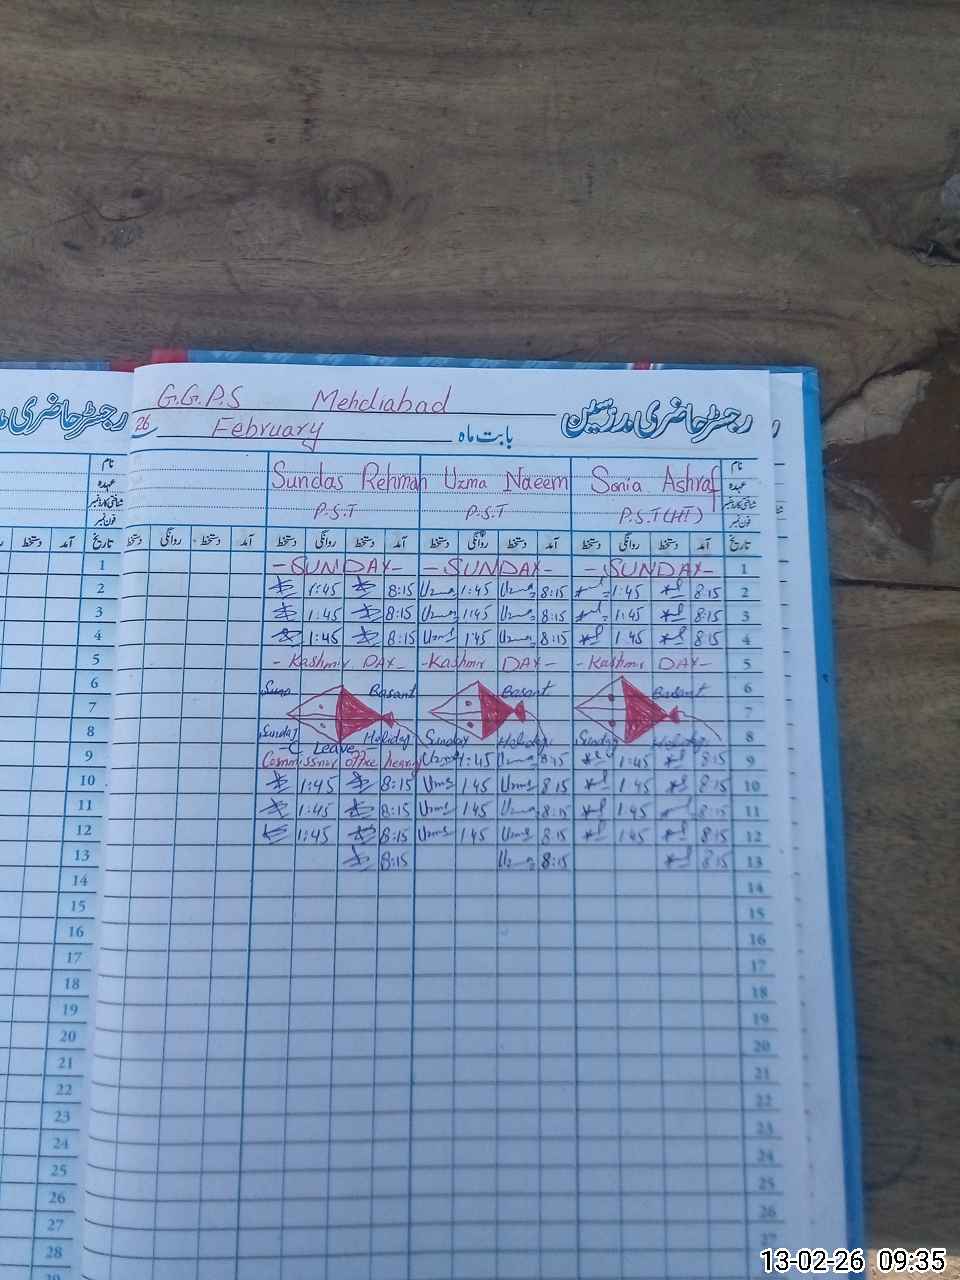 G.G.P.S Mehdiabad رجسٹر حاضری مدرسین
26 February بابت ماہ
Sundas Rehman Uzma Naeem Sonia Ashraf نام
عہدہ
P.S.T P.S.T P.S.T (HT) شناختی کارڈ نمبر
فون نمبر
آمد دستخط تاریخ دستخط روانگی دستخط آمد دستخط روانگی دستخط آمد دستخط روانگی دستخط آمد دستخط روانگی دستخط آمد تاریخ
1 -SUNDAY- -SUNDAY- -SUNDAY- 1
2 1:45 8:15 Uzma 1:45 Uzma 8:15 1:45 8:15 2
3 1:45 8:15 Uzma 1:45 Uzma 8:15 1:45 8:15 3
4 1:45 8:15 Uzma 1:45 Uzma 8:15 1:45 8:15 4
5 -Kashmir DAY- -Kashmir DAY- -Kashmir DAY- 5
6 Basant Basant Basant 6
7 7
8 Sunday Holiday Sunday Holiday Sunday Holiday 8
C Leave
9 Commissnor office hearing 1:45 8:15 1:45 8:15 9
10 1:45 8:15 Uzma 1:45 Uzma 8:15 1:45 8:15 10
11 1:45 8:15 Uzma 1:45 Uzma 8:15 1:45 8:15 11
12 1:45 8:15 Uzma 1:45 Uzma 8:15 1:45 8:15 12
13 8:15 Uzma 8:15 8:15 13
14 14
15 15
16 16
17 17
18 18
19 19
20 20
21 21
22 22
23 23
24 24
25 25
26 26
27 27
28
13-02-26 09:35